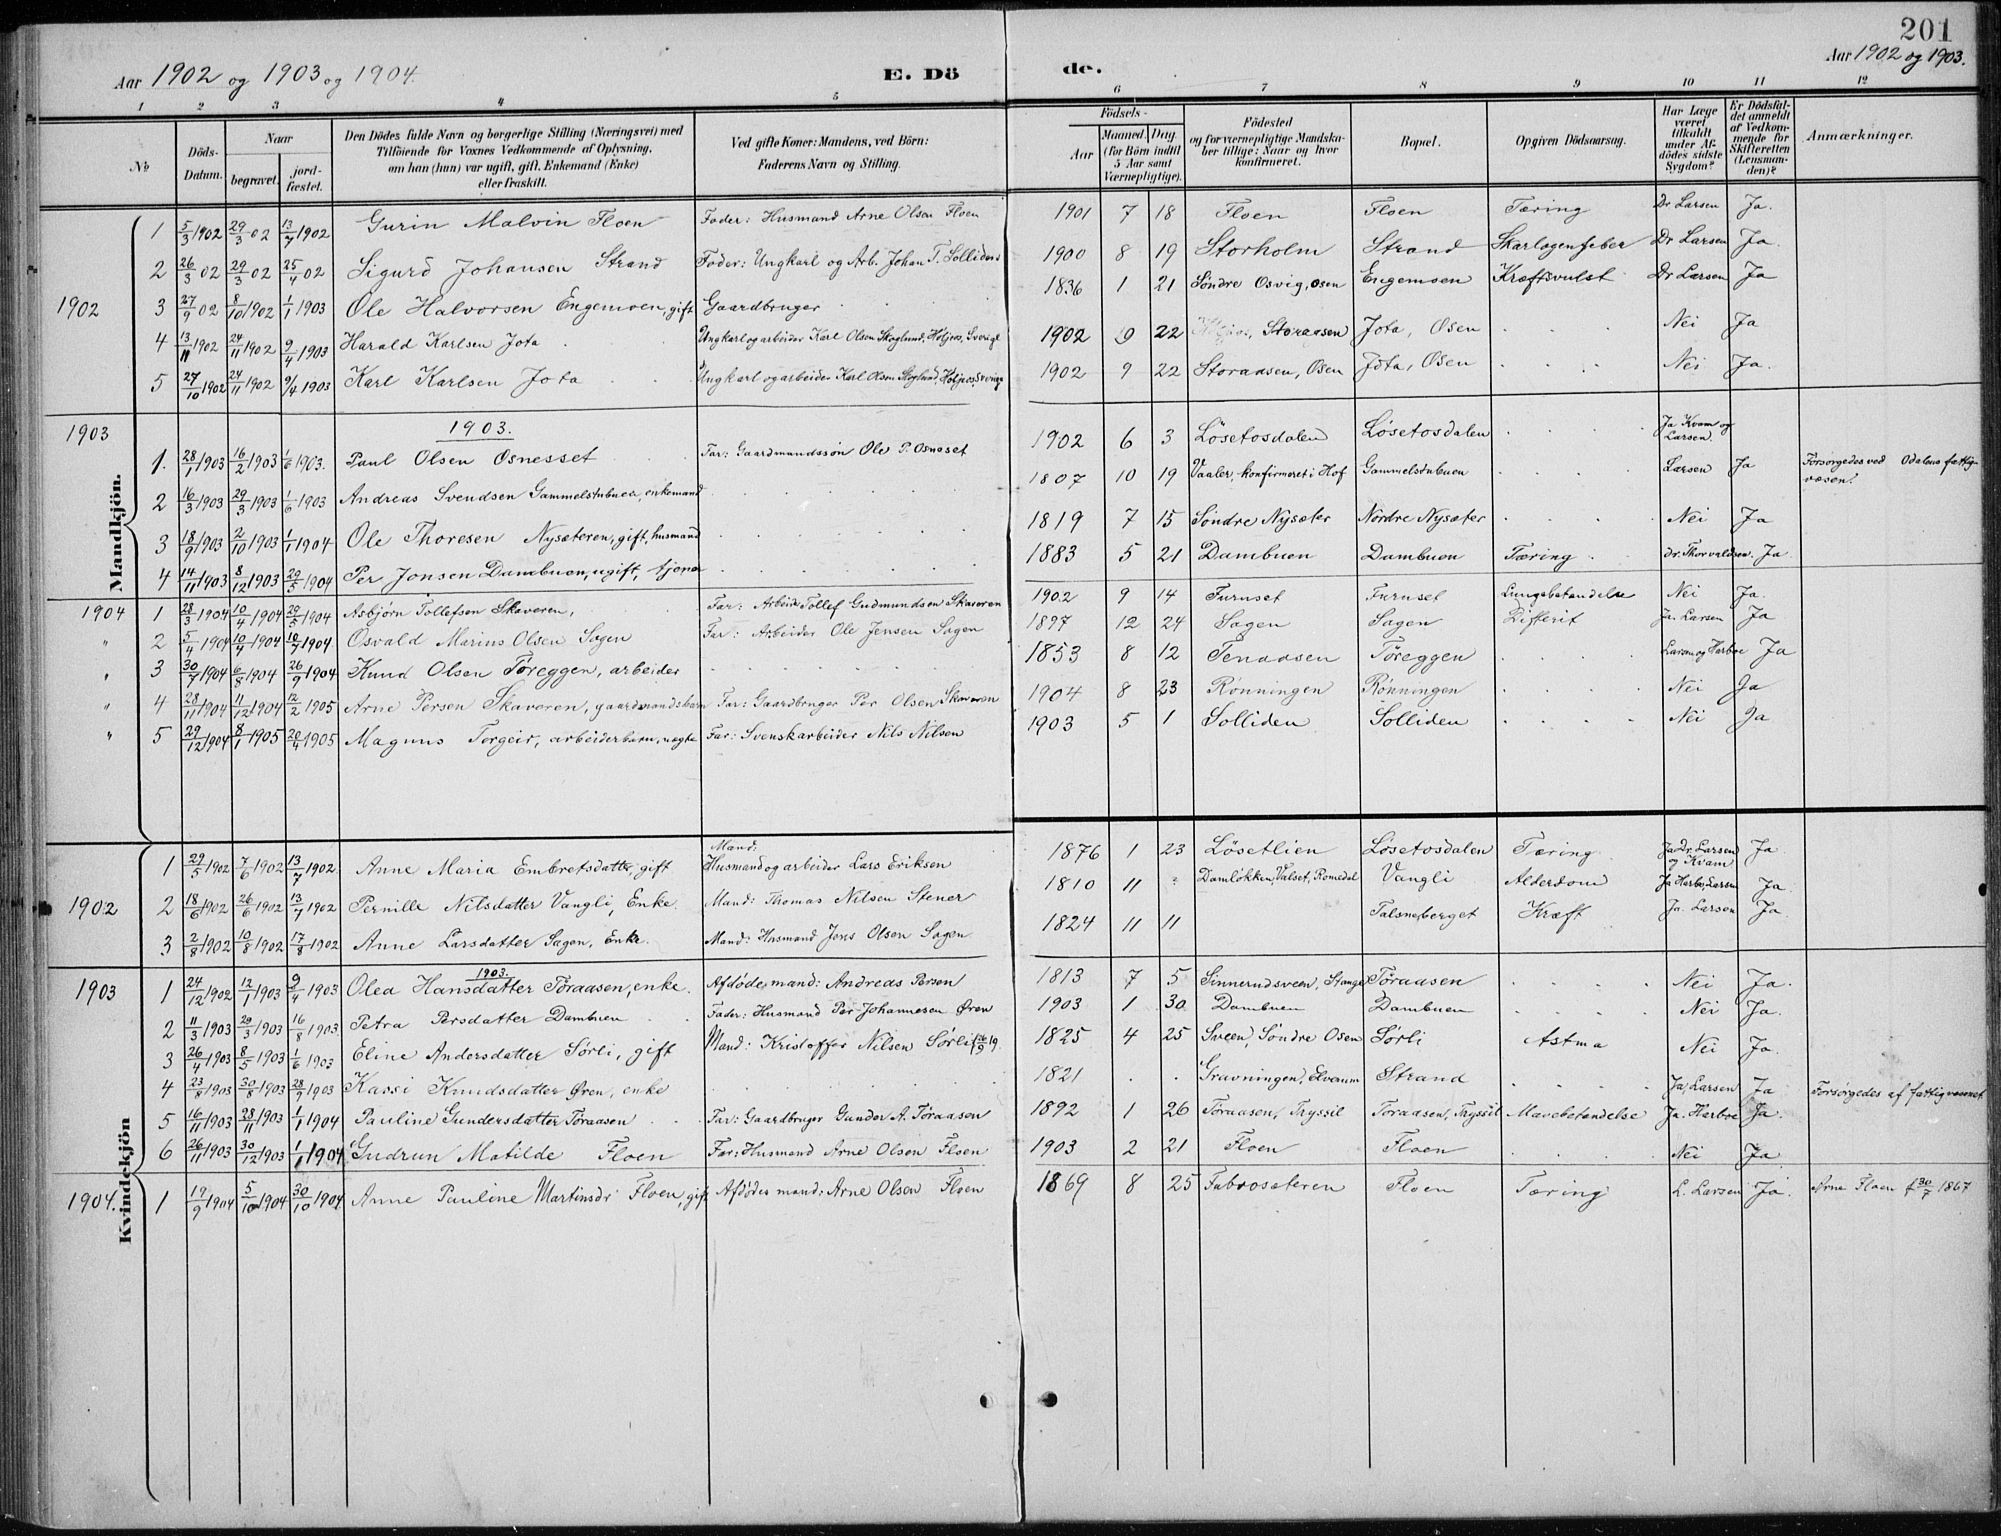 201
Aar 1902 og 1903 og 1904.
E. Dö
de.
Aar 1902 og 1903.
1 2 3 4 5
6 7 8 9 10 11 12
No
Döds-Datum.
Naar
begravet.
jord-fæstet.
Den Dödes fulde Navn og borgerlige Stilling (Næringsvei) med Tilföiende for Voxnes Vedkommende af Oplysning, om han (hun) var ugift, gift, Enkemand (Enke) eller fraskilt.
Ved gifte Koner: Mandens, ved Börn: Faderens Navn og Stilling.
Födsels-
Aar
Maaned. Dag. (for Börn indtil 5 Aar samt Værnepligtige).
Födested og for værnepligtige Mandskaber tillige: Naar og hvor konfirmeret.
Bopæl.
Opgiven Dödsaarsag.
Har Læge været tilkaldt under Afdödes sidste Sygdom?
Er Dödsfaldet anmeldt af Vedkommende for Skifteretten (Lensmanden)?
Anmærkninger.
Mandkjön.
1902
1 5/3 1902 29/3 02 13/7 1902 Gurin Malvin Floen Fader: Husmand Arne Olsen Floen 1901 7 18 Floen Floen Tæring Dr Larsen Ja.
2 26/3 02 29/3 02 25/4 02 Sigurd Johansen Strand Fader: Ungkarl og Arb. Johan T. Solliden 1900 8 19 Storholm Strand Skarlagenfeber Dr Larsen Ja.
3 27/9 02 8/10 1902 1/1 1903 Ole Halvorsen Engemoen, gift Gaardbruger 1836 1 21 Söndre Osvig, Osen Engemoen Kræftsvulst Dr Larsen Ja
4 13/11 1902 24/11 1902 9/4 1903 Harald Karlsen Jota Ungkarl og arbeider Karl Olsen Skoglund, Höljes, Sverige 1902 9 22 Storaasen Jota, Osen Nei Ja
5 27/10 1902 24/11 1902 9/4 1903 Karl Karlsen Jota Ungkarl og arbeider Karl Olsen Skoglund, Höljes Sverige 1902 9 22 Storaasen, Osen Jota, Osen Nei Ja.
1903
1903.
1. 28/1 1903 16/2 1903 1/6 1903. Paul Olsen Osnesset Far: Gaardmandssön Ole P. Osneset 1902 6 3 Lösetosdalen Lösetosdalen Ja Kvam og Larsen.
2 16/3 1903 29/3 1903 1/6 1903 Andreas Svendsen Gammelstubuen, enkemand 1807 10 19 Vaaler, konfirmeret i Hof Gammelstubuen Larsen Ja Forsörgedes ved Odalens fattigvæsen.
3 18/9 1903 2/10 1903 1/1 1904 Ole Thoresen Nysæteren, gift, husmand 1819 7 15 Söndre Nysæter Nordre Nysæter Nei Ja
4 14/11 1903 8/12 1903 29/5 1904 Per Jonsen Dambuen, ugift, tjener 1883 5 21 Dambuen Dambuen Tæring dr. Thorvaldsen. Ja
1904 1 28/3 1904 10/4 1904 29/5 1904 Asbjörn Tollefsen Skaveren, Far: Arbeider Tollef Gudmundsen Skaveren 1902 9 14 Furuset Furuset Lungebetændelse Nei Ja
" 2 5/4 1904 10/4 1904 10/7 1904 Osvald Marius Olsen Sagen Far: Arbeider Ole Jensen Sagen 1897 12 24 Sagen Sagen Difterit Ja. Larsen Ja
" 3 30/7 1904 6/8 1904 26/9 1904 Knud Olsen Töreggen, arbeider 1853 8 12 Tenaasen Töreggen Larsen og Harboe Ja
" 4 28/11 1904 11/12 1904 12/2 1905 Arne Persen Skaveren, gaardmandsbarn Far: Gaardbruger Per Olsen Skaveren 1904 8 23 Rönningen Rönningen Nei Ja
" 5 29/12 1904 8/1 1905 20/4 1905 Magnus Torgeir, arbeiderbarn, uægte Far: Svenskarbeider Nils Nilsen 1903 5 1 Solliden Solliden Nei Ja
Kvindekjön
1902
1 29/5 1902 7/6 1902 13/7 1902. Anne Maria Embretsdatter, gift Mand: Husmand og arbeider Lars Eriksen 1876 1 23 Lösetlien Lösetosdalen Tæring Ja Dr. Larsen og Kvam Ja
2 18/6 1902 26/6 1902 13/7 1902 Pernille Nilsdatter Vangli, Enke. Mand: Thomas Nilsen Stener 1810 11 ? Damlökken, Valset, Romedal Vangli Alderdom Ja Harbo, Larsen Ja.
3 2/8 1902 10/8 1902 17/8 1902 Anne Larsdatter Sagen, Enke. Mand: Husmand Jens Olsen Sagen 1824 11 11 Talsneberget Kræft Ja. Larsen Ja.
1903
1903.
1 24/12 1902 12/1 1903 9/4 1903 Olea Hansdatter Töraasen, enke. Afdöde mand: Andreas Persen 1813 7 5 Sinnerudsveen, Stange Töraasen Nei Ja.
2 11/3 1903 29/3 1903 16/8 1903. Petra Persdatter Dambuen Fader: Husmand Per Johannesen Ören 1903 1 30 Dambuen Dambuen Nei Ja.
3 26/4 1903 8/5 1903 1/6 1903 Eline Andersdatter Sörli, gift Mand: Kristoffer Nilsen Sörli 1825 4 25 Sveen, Söndre Osen Sörli Astma Nei Ja.
4 23/8 1903 30/8 1903 28/9 1903 Kassi Knudsdatter Ören, enke 1821 Gravningen, Elverum Strand Ja, Larsen Ja Forsörgedes af fattigvæsenet
5 16/11 1903 28/11 1903 1/1 1904 Pauline Gundersdatter Töraasen Far: Gaardbruger Gunder A. Töraasen 1892 1 26 Töraasen, Tryssil Toraasen, Tryssil Mavebetændelse Ja. Harboe Ja.
6 26/11 1903 30/12 1903 1/1 1904 Gudrun Matilde Floen Far: Husmand Arne Olsen Floen 1903 2 21 Floen Floen Nei Ja
1904. 1 19/9 1904 5/10 1904 30/10 1904 Anne Pauline Martinsdr Floen, gift Afdödes mand: Arne Olsen Floen 1869 8 25 Fabrosæteren Floen Tæring L. Larsen Ja. Arne Floen f 30/7 1867